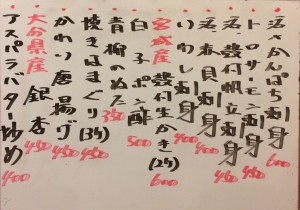 活かんぱち刺身 600
トロサーモン刺身 450
活殻付帆立刺身 450
活赤貝刺身 400
いわし刺身 400
宮城産 殻付生かき(2ケ) 600
白子ポン酢 500
青柳のぬた 350
焼きはまぐり(3ケ) 450
かわり唐揚げ 450
大分県産 銀杏 450
アスパラバター炒め 400